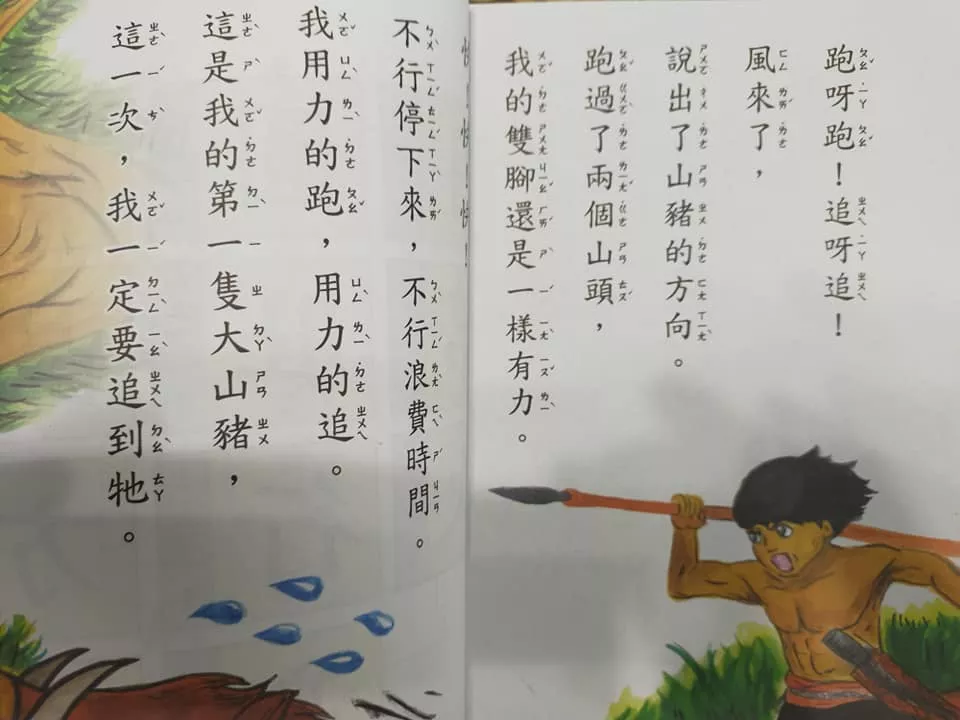 跑呀跑！追呀追！
風來了，
說出了山豬的方向。
跑過了兩個山頭，
我的雙腳還是一樣有力。
快！快！快！
不行停下來，不行浪費時間。
我用力的跑，用力的追。
這是我的第一隻大山豬，
這一次，我一定要追到牠。